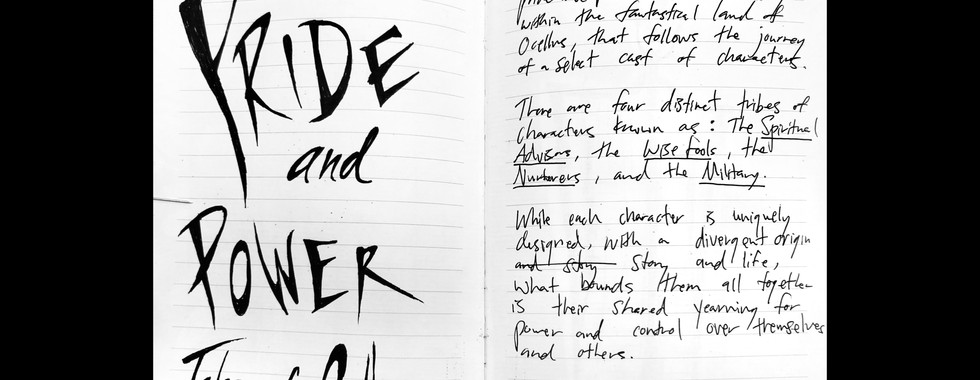 PRIDE
and
POWER
within the fantastical land of
Ocellus, that follows the journey
of a select cast of characters.
There are four distinct tribes of
characters known as: The Spiritual
Advisors, the Wise fools, the
Nurturers, and the Military.
While each character is uniquely
designed, with a divergent origin
and story story and life,
what bounds them all together
is their shared yearning for
power and control over themselves
and others.